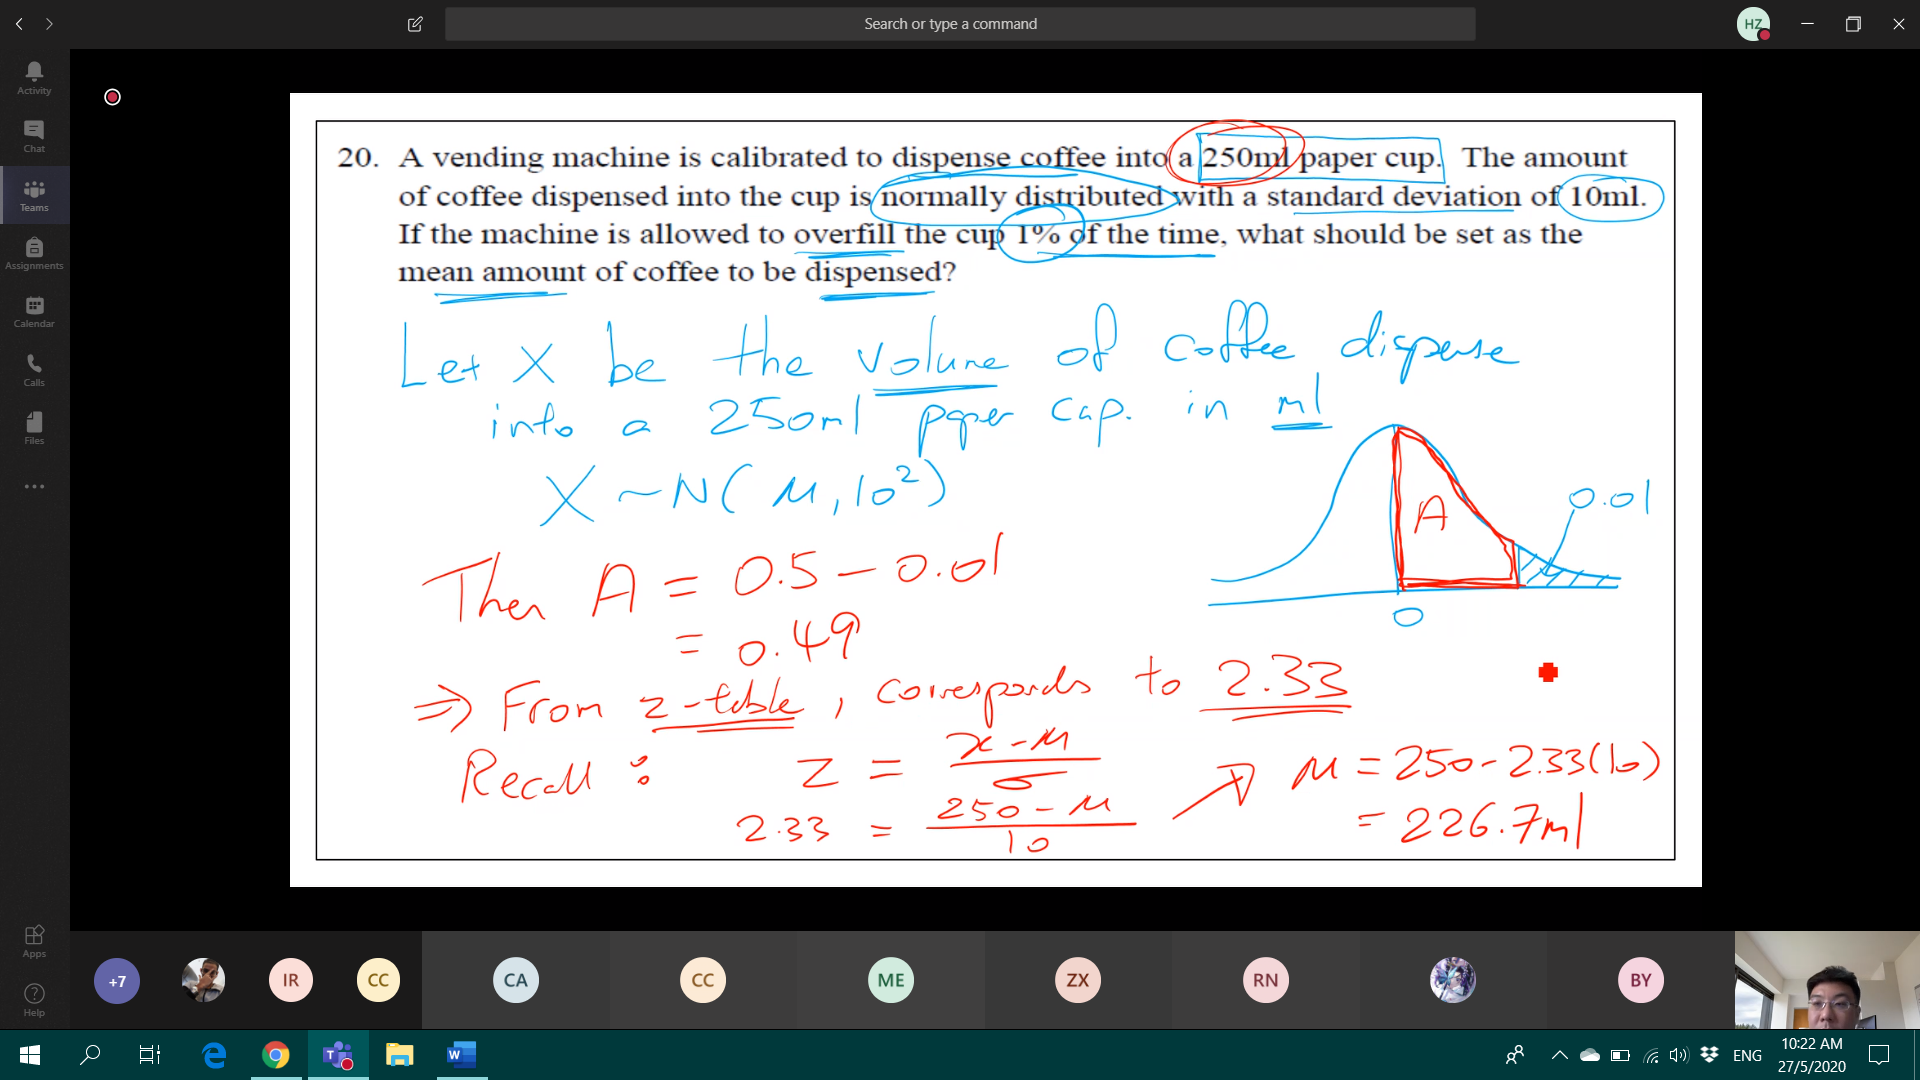 Search or type a command
HZ
Activity
Chat
Teams
Assignments
Calendar
Calls
Files
Apps
Help
20. A vending machine is calibrated to dispense coffee into a 250ml paper cup. The amount
of coffee dispensed into the cup is normally distributed with a standard deviation of 10ml.
If the machine is allowed to overfill the cup 1% of the time, what should be set as the
mean amount of coffee to be dispensed?
Let X be the volume of coffee dispense
into a 250ml paper cup. in ml
X ~ N( μ, 10²)
A
0.01
0
Then A = 0.5 - 0.01
= 0.49
⇒ From z-table, corresponds to 2.33
Recall : z = x - μ / σ
2.33 = 250 - μ / 10
μ = 250 - 2.33(10)
= 226.7ml
+7
IR
CC
CA
CC
ME
ZX
RN
BY
ENG
10:22 AM
27/5/2020